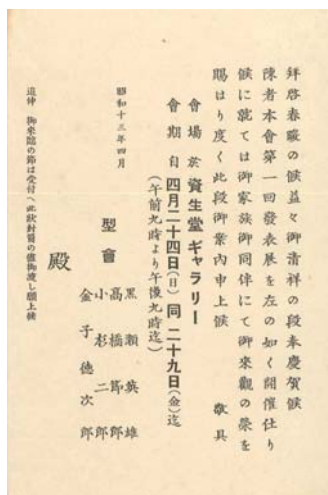 拜啓春暖の候益々御清祥の段奉慶賀候
陳者本會第一回發表展を左の如く開催仕り
候に就ては御家族御同伴にて御來觀の榮を
賜はり度く此段御案內申上候　敬具
會場　於　資生堂ギャラリー
會期　自　四月二十四日(日)同　二十九日(金)迄
(午前九時より午後九時迄)
昭和十三年四月
型會
黑瀨英雄
高橋節郎
小杉二郎
金子德次郎
殿
追伸　御來臨の節は受付へ此狀封筒の儘御渡し願上候